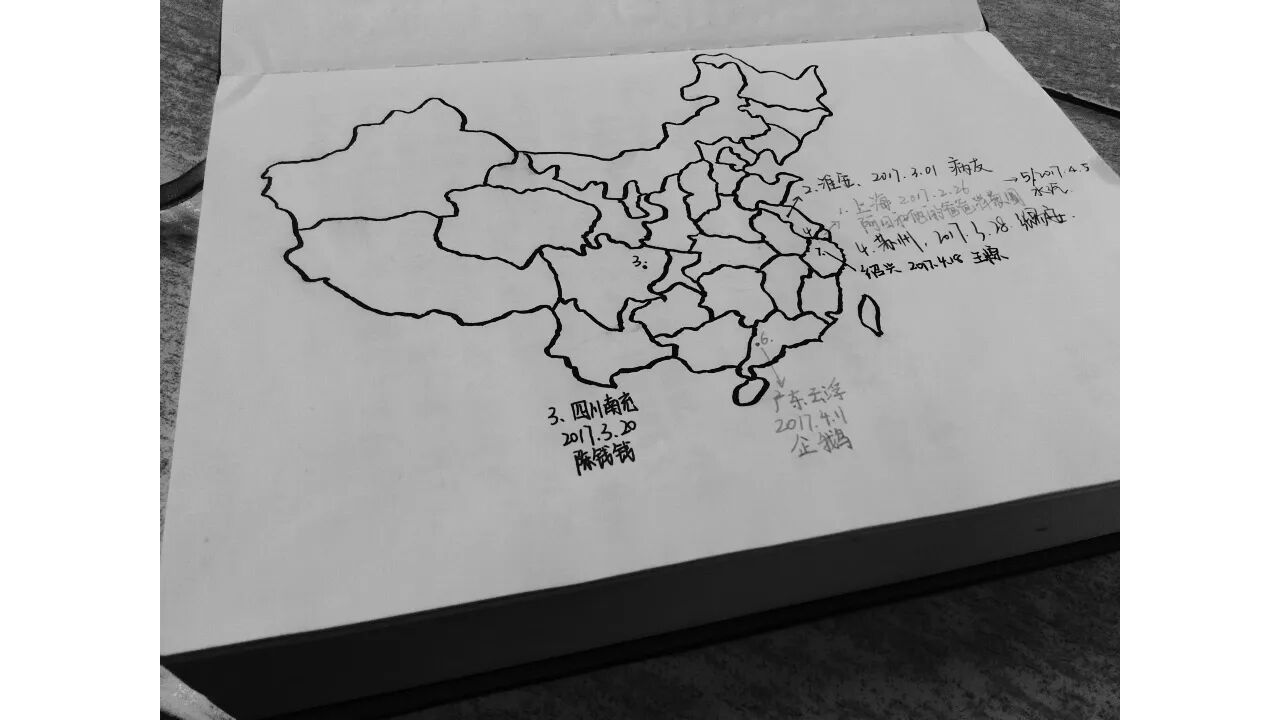 2. 淮安、2017.3.01 病友
→5/2017.4.5
水汽
1. 上海 2017.2.26
4. 苏州, 2017.3.28.
绍兴 2017.4.18 王
4.
7.
3.
6.
3、四川南充
2017.3.20
陈钱钱
广东云浮
2017.4.11
企鹅